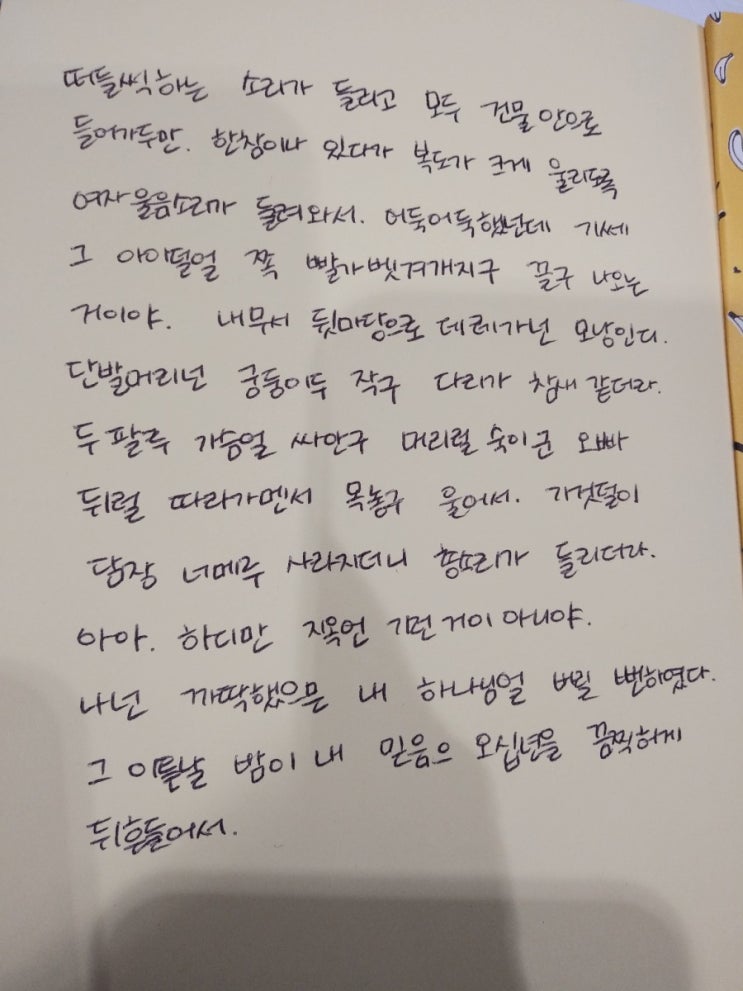 떠들썩하는 소리가 들리고 모두 건물 안으로
들어가두만. 한창이나 있다가 복도가 크게 울리도록
여자 울음소리가 들려와서. 어둑어둑했넌데 기쎄
그 아이덜얼 쪽 빨가벳겨개지구 끌구 나오는
거이야. 내무서 뒷마당으로 데레가넌 모냥인디.
단발머리넌 궁둥이두 작구 다리가 참새 같더라.
두 팔루 가슴얼 싸안구 머리럴 숙이군 오빠
뒤럴 따라가멘서 목놓구 울어서. 기것덜이
담장 너메루 사라지더니 총소리가 들리더라.
아아. 하디만 지옥언 기런 거이 아니야.
나넌 까딱했으믄 내 하나님얼 버릴 뻔하였다.
그 이틀날 밤이 내 믿음으 오십년을 끔찍하게
뒤흔들어서.